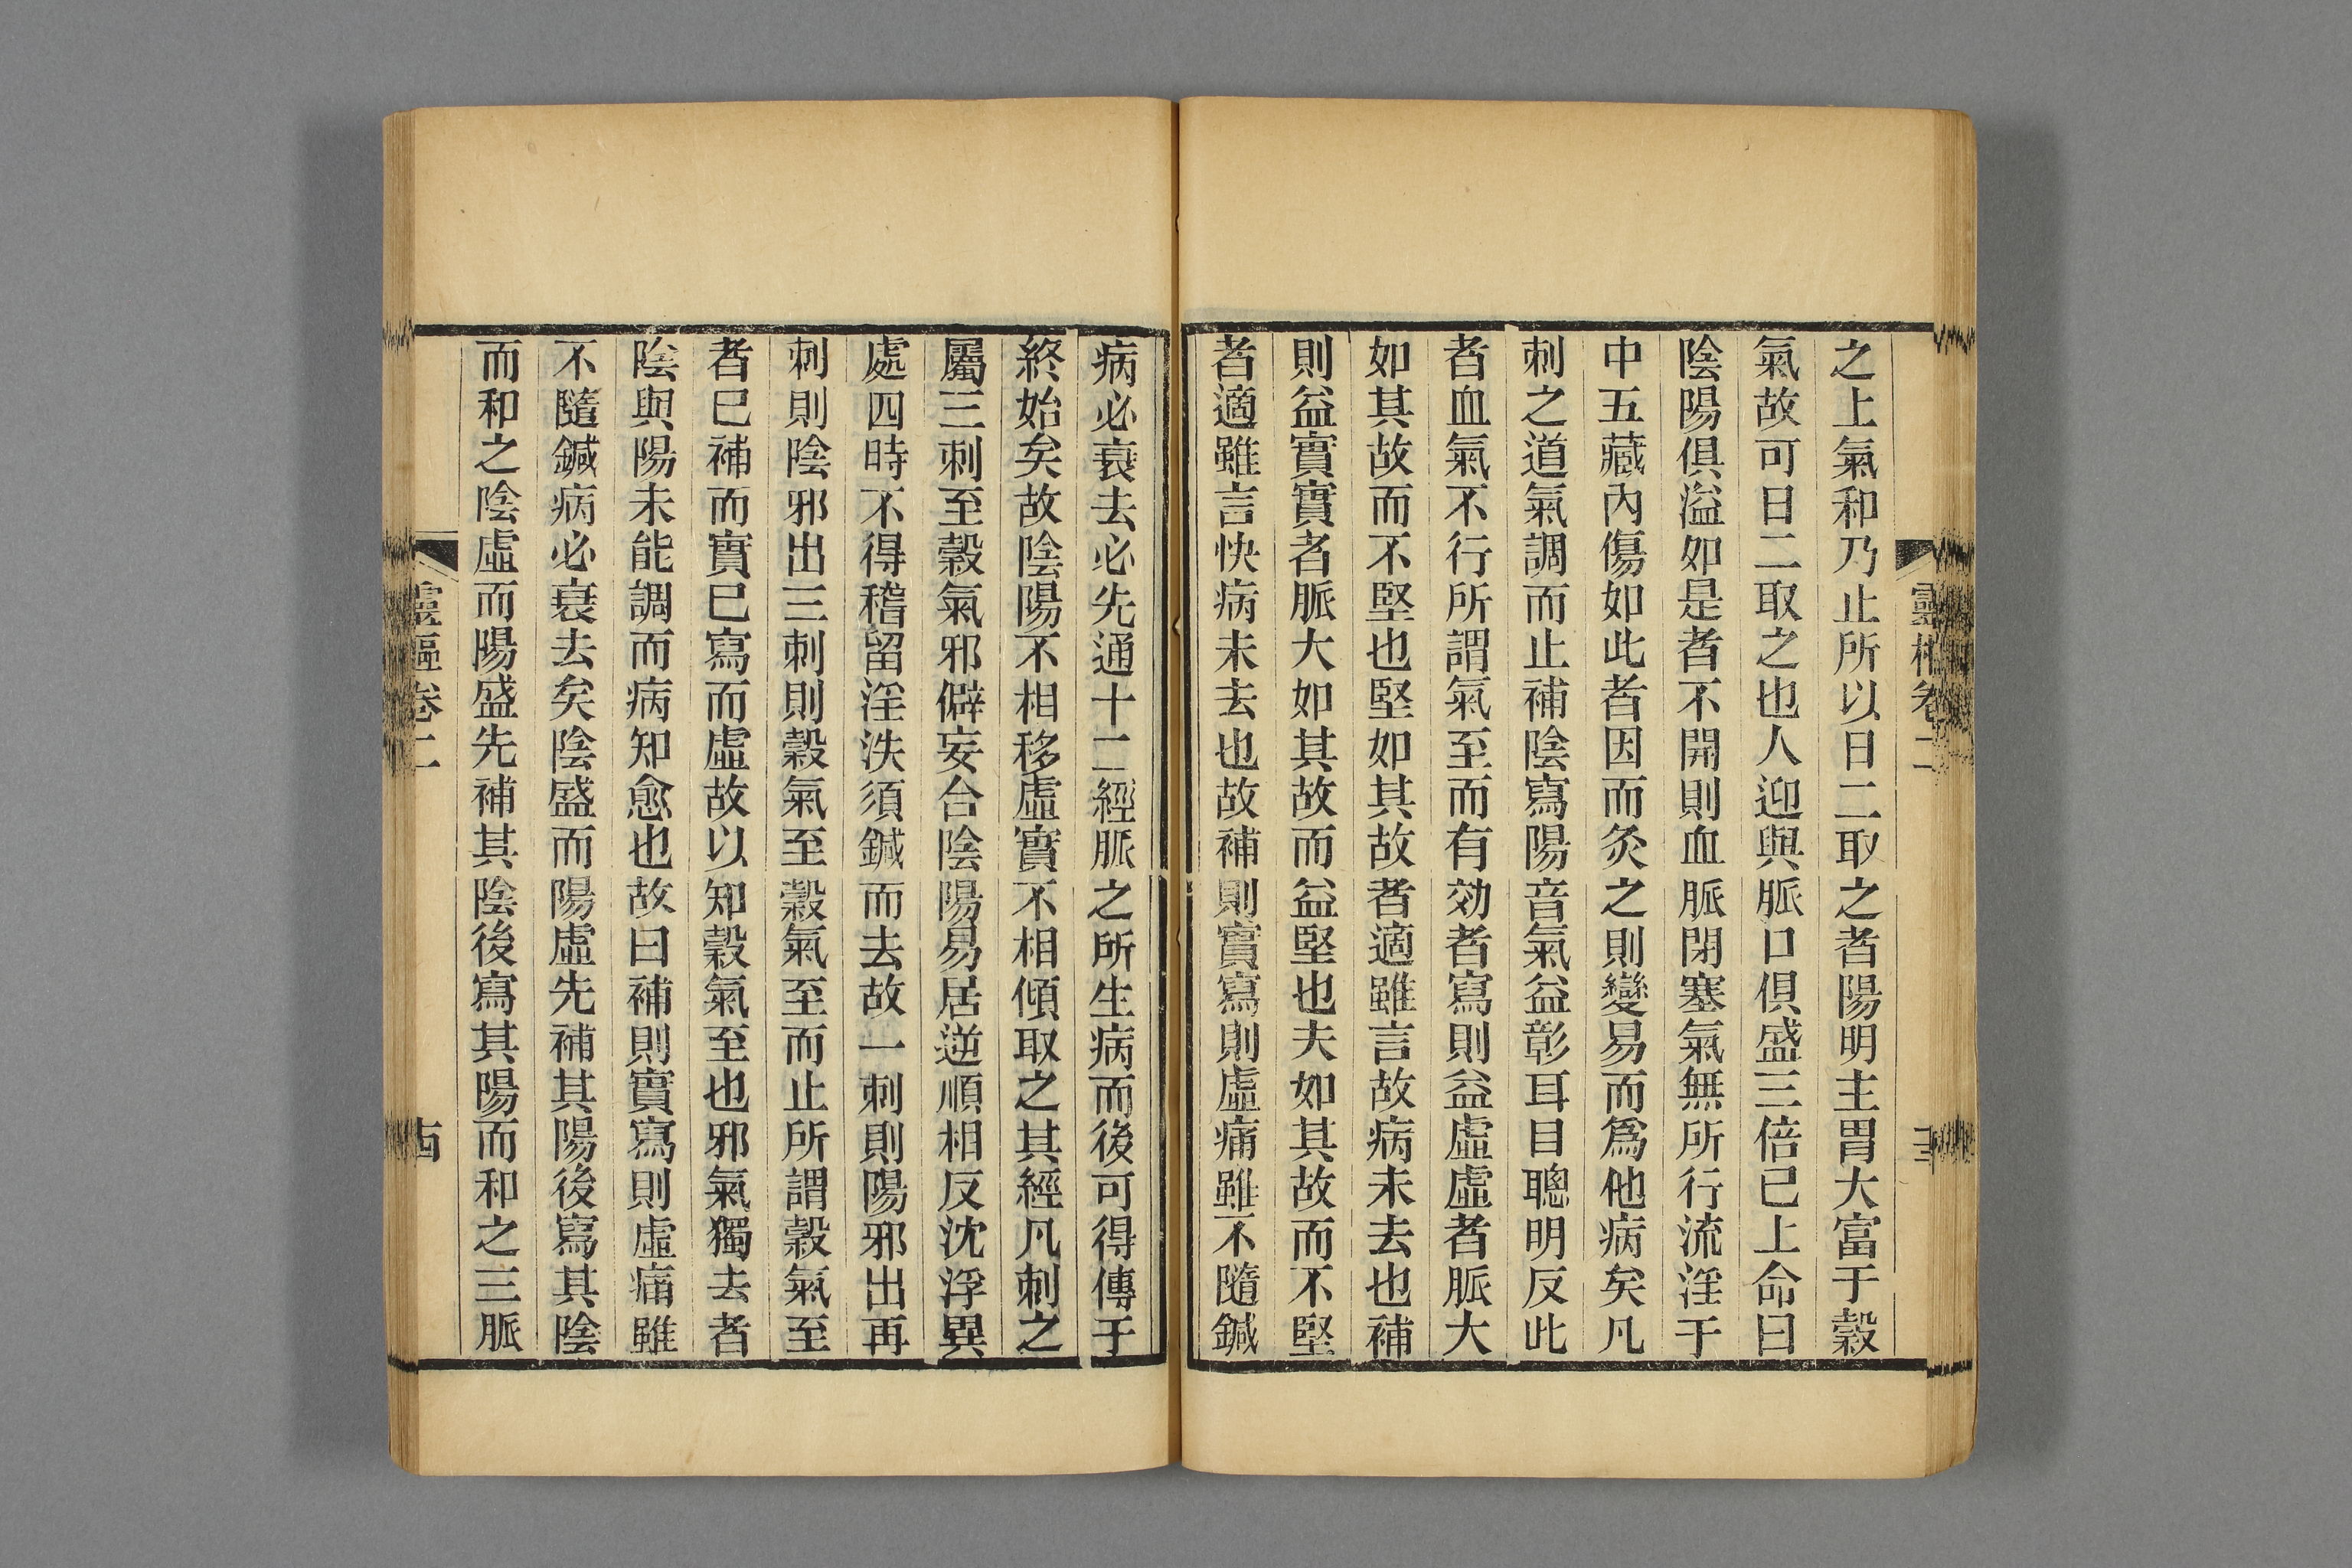 之上氣和乃止所以日二取之者陽明主胃大富于穀
氣故可日二取之也人迎與脈口俱盛三倍已上命曰
陰陽俱溢如是者不開則血脈閉塞氣無所行流淫于
中五藏內傷如此者因而灸之則變易而爲他病矣凡
刺之道氣調而止補陰寫陽音氣益彰耳目聰明反此
者血氣不行所謂氣至而有効者寫則益虛虛者脈大
如其故而不堅也堅如其故者適雖言故病未去也補
則益實實者脈大如其故而益堅也夫如其故而不堅
者適雖言快病未去也故補則實寫則虛痛雖不隨鍼
病必衰去必先通十二經脈之所生病而後可得傳于
終始矣故陰陽不相移虛實不相傾取之其經凡刺之
屬三刺至穀氣邪僻妄合陰陽易居逆順相反沈浮異
處四時不得稽留淫泆須鍼而去故一刺則陽邪出再
刺則陰邪出三刺則穀氣至穀氣至而止所謂穀氣至
者已補而實已寫而虛故以知穀氣至也邪氣獨去者
陰與陽未能調而病知愈也故曰補則實寫則虛痛雖
不隨鍼病必衰去矣陰盛而陽虛先補其陽後寫其陰
而和之陰虛而陽盛先補其陰後寫其陽而和之三脈
靈樞卷二